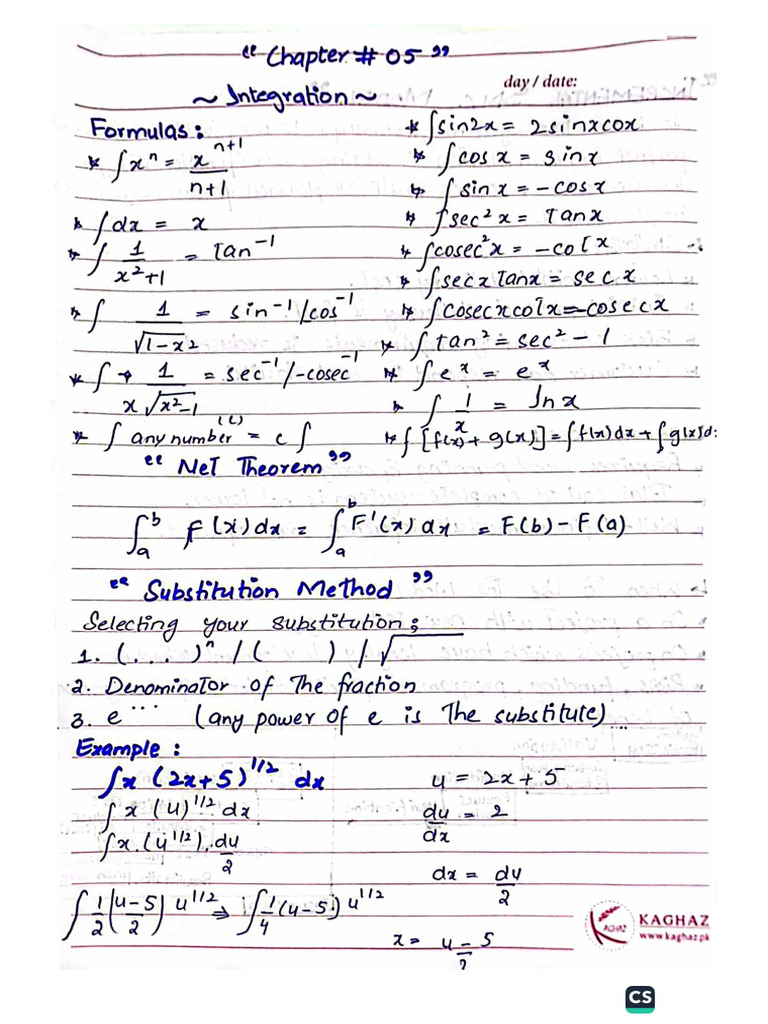 “ Chapter # 05 ”
day / date:
~ Integration ~
Formulas :
* ∫xⁿ = x^(n+1) / n+1
* ∫dx = x
* ∫ 1/(x²+1) = Tan⁻¹
* ∫ 1/√(1-x²) = sin⁻¹/cos⁻¹
* ∫ → 1/(x√(x²-1)) = sec⁻¹/-cosec⁻¹
* ∫ any number (c) = c ∫
* ∫sin2x = 2sinxcox
* ∫cos x = sinx
* ∫sinx = -cosx
* ∫sec²x = Tanx
* ∫cosec²x = -coTx
* ∫secxTanx = secx
* ∫cosecxcotx = -cosecx
* ∫tan² = sec² - 1
* ∫eˣ = eˣ
* ∫ 1/x = lnx
* ∫[f(x) + g(x)] = ∫f(x)dx + ∫g(x)d
“ NeT Theorem ”
∫ₐᵇ F(x)dx = ∫ₐᵇ F'(x)dx = F(b) - F(a)
“ Substitution Method ”
Selecting your substitution:
1. (...)ⁿ / ( ) / √
2. Denominator of The fraction
3. e^... (any power of e is The substitute)
Example :
∫x (2x+5)^1/2 dx
∫x (u)^1/2 dx
∫x.(u^1/2). du/2
∫ 1/2 (u-5/2) u^1/2 ⇒ ∫ 1/4 (u-5) u^1/2
u = 2x+5
du/dx = 2
dx = du/2
x = u-5/2
KAGHAZ
www.kaghaz.pk
CS